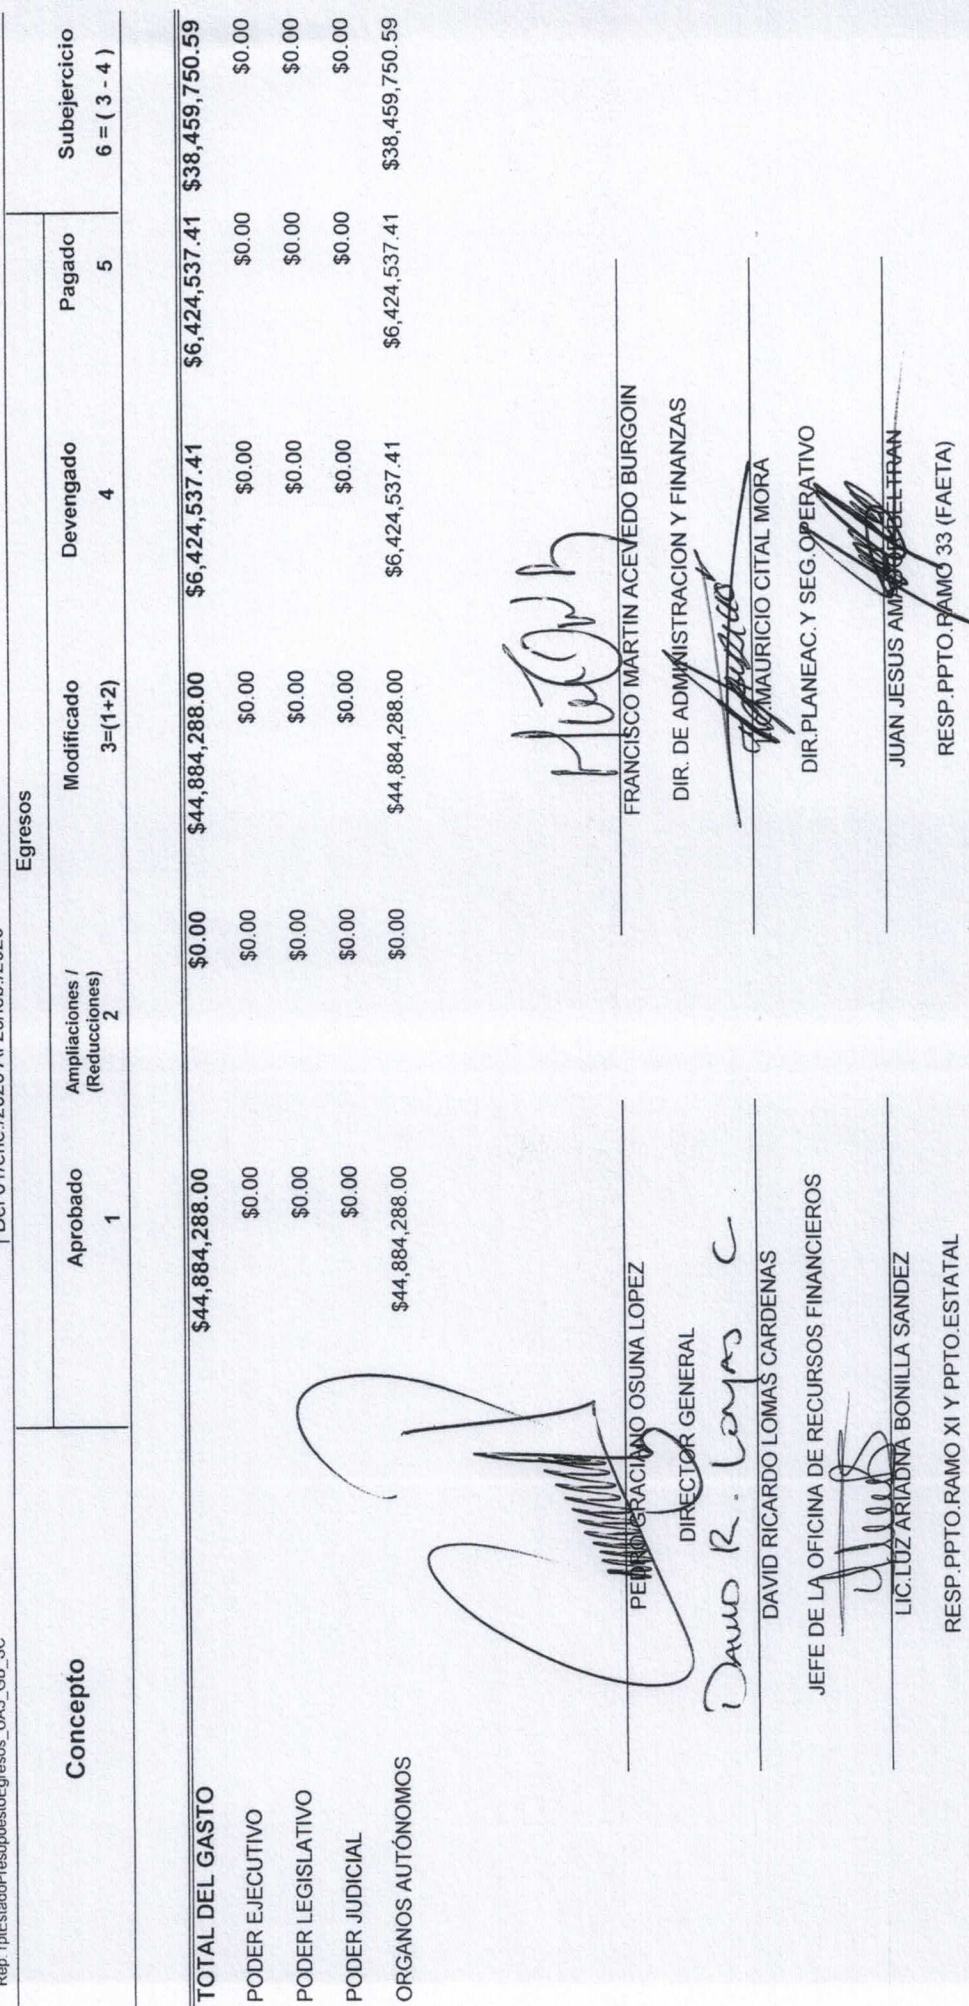 Egresos
Concepto Aprobado Ampliaciones / (Reducciones) Modificado Devengado Pagado Subejercicio
1 2 3=(1+2) 4 5 6 = ( 3 - 4 )
TOTAL DEL GASTO $44,884,288.00 $0.00 $44,884,288.00 $6,424,537.41 $6,424,537.41 $38,459,750.59
PODER EJECUTIVO $0.00 $0.00 $0.00 $0.00 $0.00 $0.00
PODER LEGISLATIVO $0.00 $0.00 $0.00 $0.00 $0.00 $0.00
PODER JUDICIAL $0.00 $0.00 $0.00 $0.00 $0.00 $0.00
ORGANOS AUTÓNOMOS $44,884,288.00 $0.00 $44,884,288.00 $6,424,537.41 $6,424,537.41 $38,459,750.59
PEDRO GRACIANO OSUNA LOPEZ
DIRECTOR GENERAL
David R. Lomas C
DAVID RICARDO LOMAS CARDENAS
JEFE DE LA OFICINA DE RECURSOS FINANCIEROS
LIC.LUZ ARIADNA BONILLA SANDEZ
RESP.PPTO.RAMO XI Y PPTO.ESTATAL
FRANCISCO MARTIN ACEVEDO BURGOIN
DIR. DE ADMINISTRACION Y FINANZAS
MAURICIO CITAL MORA
DIR.PLANEAC.Y SEG.OPERATIVO
JUAN JESUS BELTRAN
RESP.PPTO.RAMO 33 (FAETA)